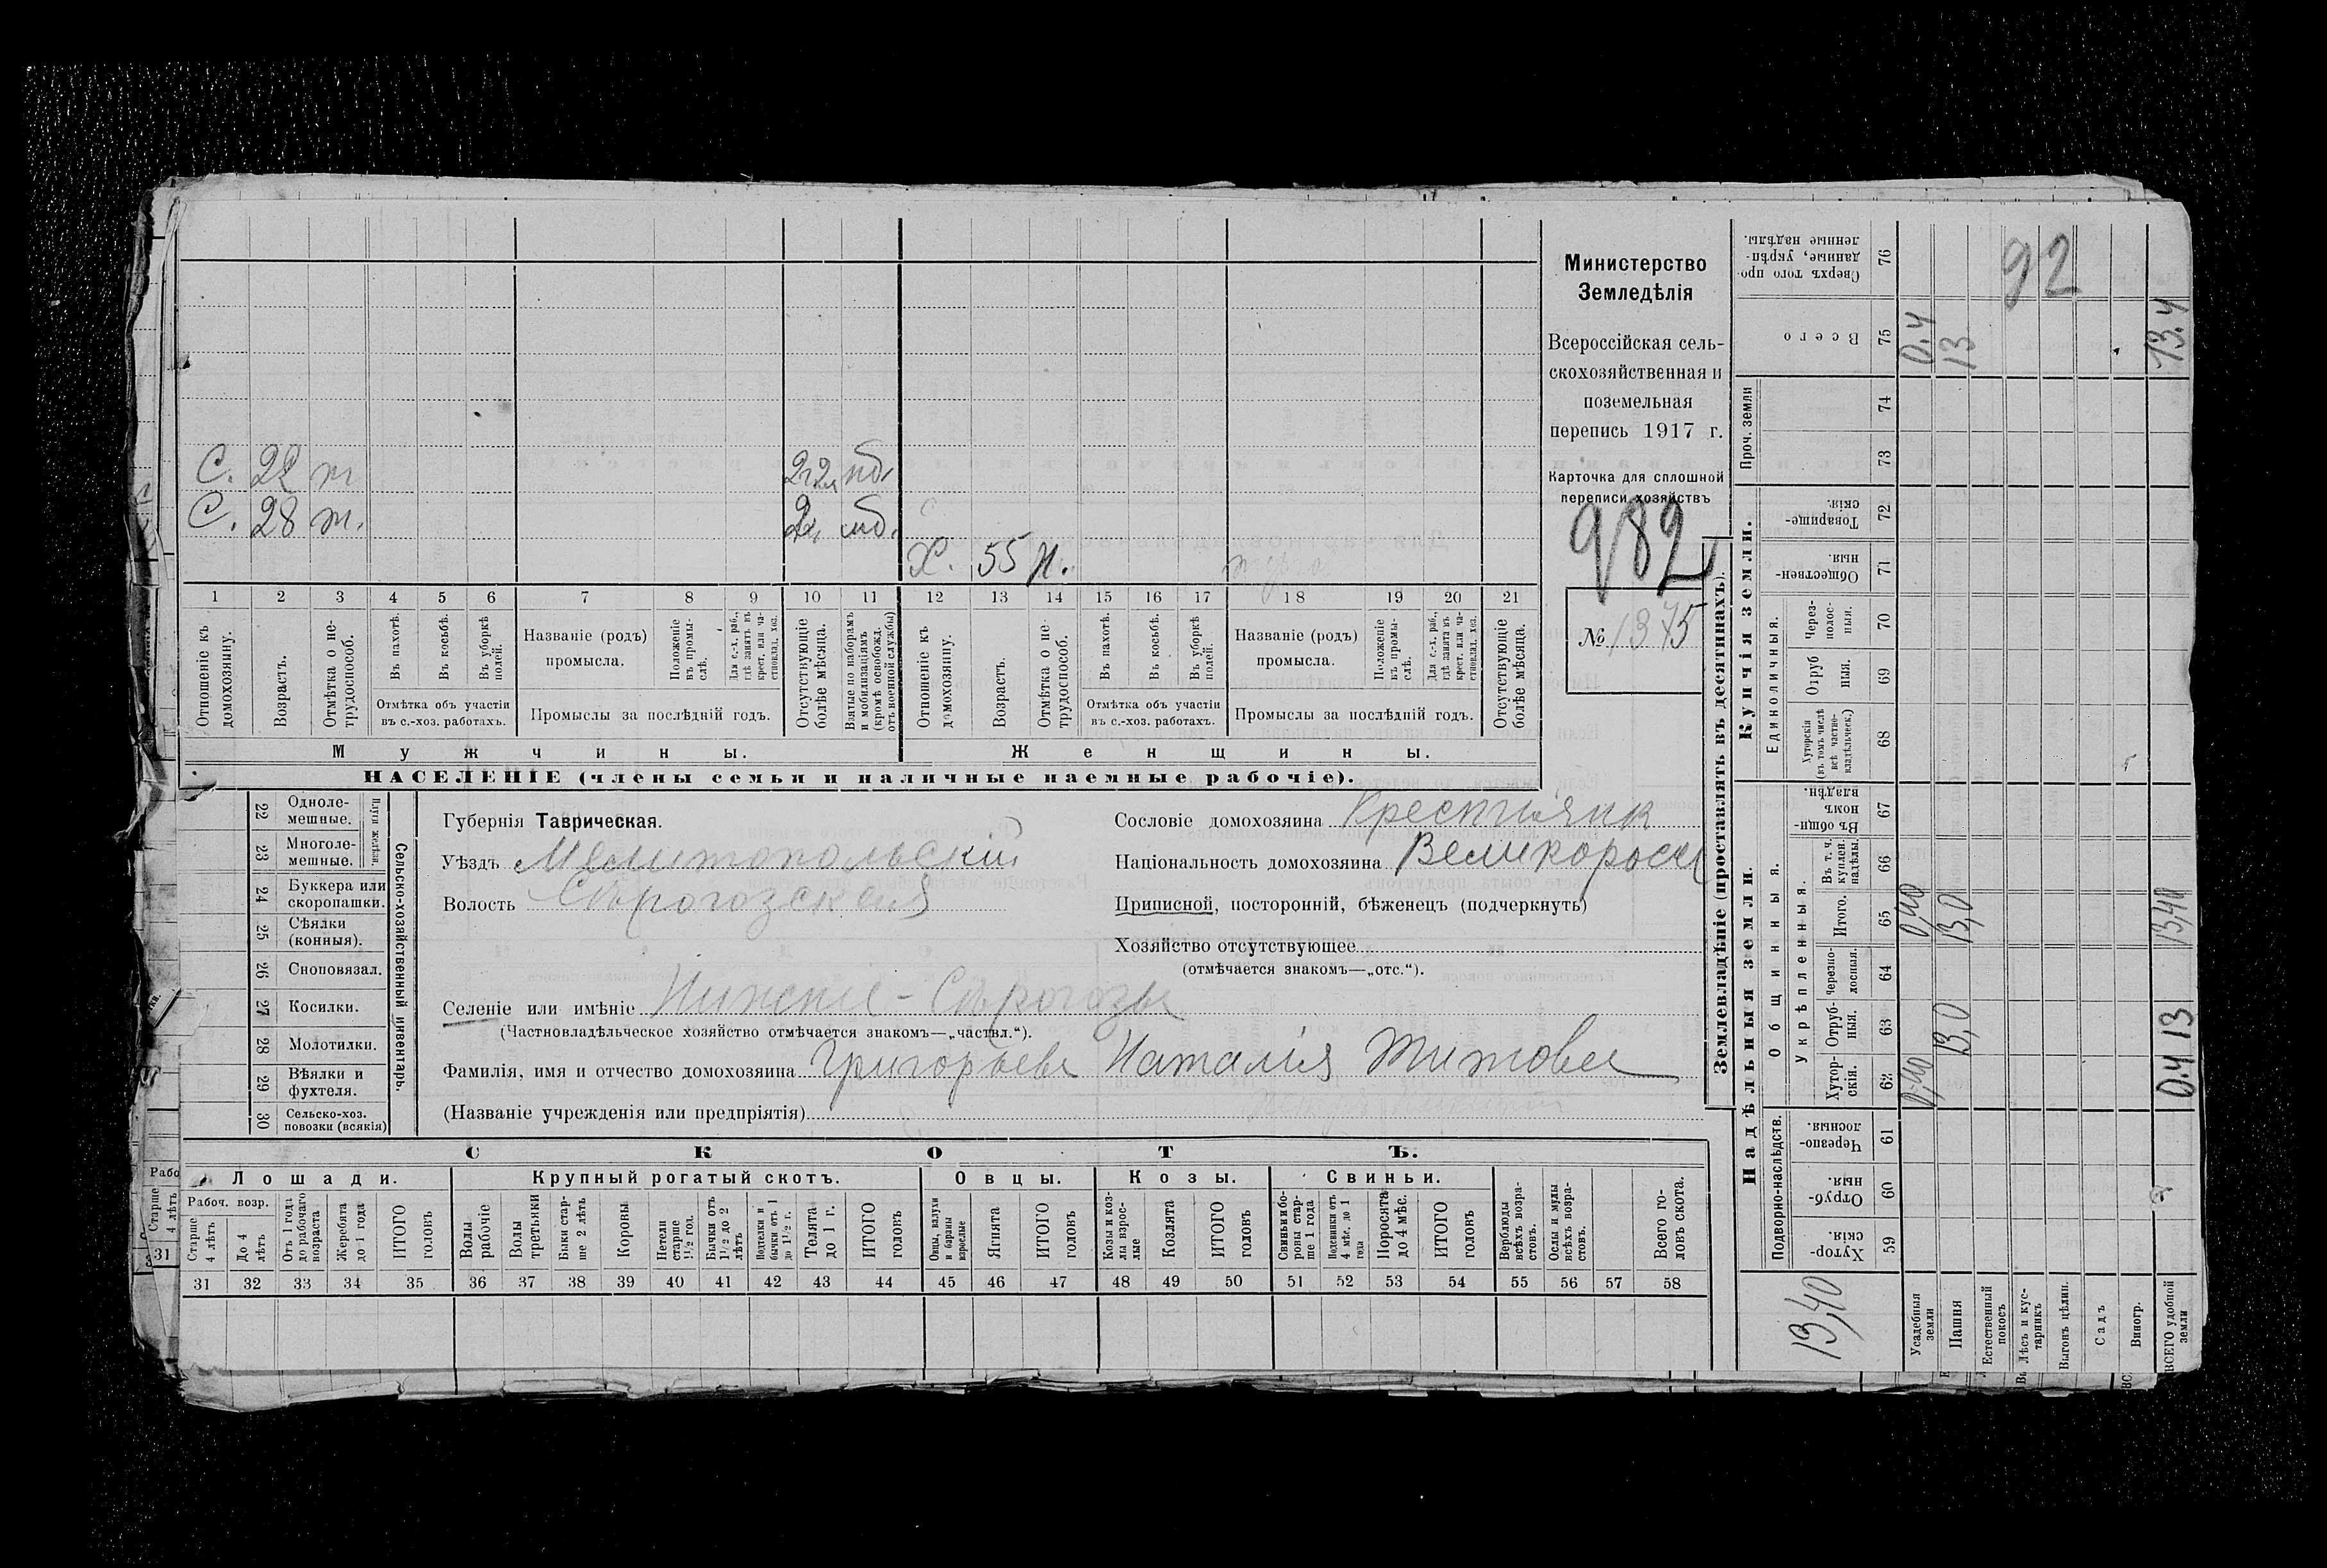 Министерство
Земледѣлія
Всероссійская сель-
скохозяйственная и
поземельная
перепись 1917 г.
Карточка для сплошной
переписи хозяйствъ
982
№ 1375
92
С. 22 т
С. 28 т.
Х. 55 н.
1 2 3 4 5 6 7 8 9 10 11 12 13 14 15 16 17 18 19 20 21
Отношеніе къ домохозяину.
Возрастъ.
Отмѣтка о не-трудоспособ.
Въ пахотѣ.
Въ косьбѣ.
Въ уборкѣ полей.
Отмѣтка объ участіи
въ с.-хоз. работахъ.
Названіе (родъ)
промысла.
Положеніе въ промы-слѣ.
Для с.-х. раб., гдѣ занятъ въ крест. или ча-стновлад. хоз.
Промыслы за послѣдній годъ.
Отсутствующіе болѣе мѣсяца.
Взятые по наборамъ и мобилизаціямъ (кромѣ освобожд. отъ военной службы)
Отношеніе къ домохозяину.
Возрастъ.
Отмѣтка о не-трудоспособ.
Въ пахотѣ.
Въ косьбѣ.
Въ уборкѣ полей.
Отмѣтка объ участіи
въ с.-хоз. работахъ.
Названіе (родъ)
промысла.
Положеніе въ промы-слѣ.
Для с.-х. раб., гдѣ занята въ крест. или ча-стновлад. хоз.
Промыслы за послѣдній годъ.
Отсутствующіе болѣе мѣсяца.
Мужчины.
Женщины.
НАСЕЛЕНІЕ (члены семьи и наличные наемные рабочіе).
Губернія Таврическая.
Уѣздъ Мелитопольскій
Волость Сѣрогозская
Селеніе или имѣніе Нижніе-Сѣрогозы
(Частновладѣльческое хозяйство отмѣчается знакомъ—„частвл.“).
Фамилія, имя и отчество домохозяина Григорьева Наталія Титовна
(Названіе учрежденія или предпріятія)
Сословіе домохозяина Крестьянк
Національность домохозяина Великоросс
Приписной, посторонній, бѣженецъ (подчеркнуть)
Хозяйство отсутствующее
(отмѣчается знакомъ—„отс.“).
Сельско-хозяйственный инвентарь.
Плуги желѣзн.
22 Одноле-мешные.
23 Многоле-мешные.
24 Буккера или скоропашки.
25 Сѣялки (конныя).
26 Сноповязал.
27 Косилки.
28 Молотилки.
29 Вѣялки и фухтеля.
30 Сельско-хоз. повозки (всякія)
СКОТЪ.
Лошади.
Крупный рогатый скотъ.
Овцы.
Козы.
Свиньи.
Рабоч. возр.
Старше 4 лѣтъ
До 4 лѣтъ
Отъ 1 года до рабочаго возраста
Жеребята до 1 года
ИТОГО головъ
Волы рабочіе
Волы третьяки
Быки стар-ше 2 лѣтъ
Коровы
Нетели старше 1½ год.
Бычки отъ 1½ до 2 лѣтъ
Подтелки и бычки отъ 1 до 1½ г.
Телята до 1 г.
ИТОГО головъ
Овцы, валухи и бараны взрослые
Ягнята
ИТОГО головъ
Козы и коз-лы взрос-лые
Козлята
ИТОГО головъ
Свиньи и бо-ровы стар-ше 1 года
Подсвинки отъ 4 мѣс. до 1 года
Поросята до 4 мѣс.
ИТОГО головъ
Верблюды всѣхъ возра-стовъ.
Ослы и мулы всѣхъ возра-стовъ.
Всего го-ловъ скота.
31 32 33 34 35 36 37 38 39 40 41 42 43 44 45 46 47 48 49 50 51 52 53 54 55 56 57 58
Землевладѣніе (проставлять въ десятинахъ).
Надѣльныя земли.
Купчія земли.
Проч. земли
Подворно-наслѣдств.
Общинныя.
Укрѣпленныя.
Единоличныя.
Хутор-скія. 59
Отруб-ныя. 60
Черезпо-лосныя. 61
Хутор-скія. 62
Отруб-ныя. 63
Черезпо-лосныя. 64
Итого. 65
Въ т. ч. куплен. надѣлы. 66
Въ общин-номъ владѣн. 67
Хуторскія (въ томъ числѣ всѣ частно-владѣльческ.) 68
Отруб ныя. 69
Через-полос-ныя. 70
Обществен-ныя 71
Товарище-скія. 72
73
74
Всего 75
Сверхъ того про-данные, укрѣп-ленные надѣлы. 76
Усадебныя земли 0,40 0,40 0.4
Пашня 13,0 13,0 13
Естественный покосъ
Лѣсъ и кус-тарникъ
Выгонъ цѣлин.
Садъ
Виногр.
ВСЕГО удобной земли 0.4 13 13,40 13.4
13,40